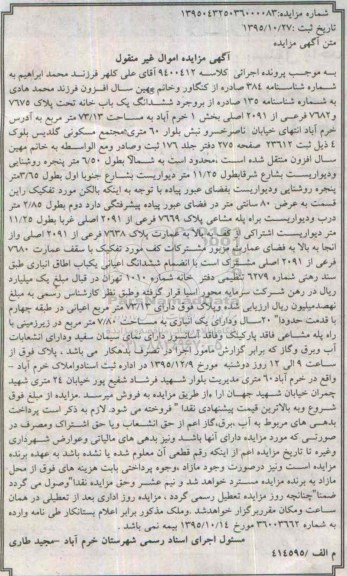 شماره مزایده: ۱۳۹۵۰۴۳۲۵۰۳۶۰۰۰۰۸۳
تاریخ ثبت: ۱۳۹۵/۱۰/۲۷
متن آگهی مزایده
آگهی مزایده اموال غیر منقول
به موجب پرونده اجرائی کلاسه ۹۴۰۰۴۱۲ آقای علی کلهر فرزند محمد ابراهیم به
شماره شناسنامه ۳۸۴ صادره از کنگاور وخانم مهین سال افزون فرزند محمد هادی
به شماره شناسنامه ۱۳۵ صادره از بروجرد ششدانگ یک باب خانه تحت پلاک ۷۶۷۵
و۷۶۸۲ فرعی از ۲۰۹۱ اصلی بخش ۱ خرم آباد به مساحت ۷۳/۱۳ متر مربع به آدرس
خرم آباد انتهای خیابان ناصرخسرو نبش بلوار ۶۰ متری،مجتمع مسکونی گلدیس بلوک
۴ ذیل ثبت ۲۳۶۱۲ صفحه ۲۷۵ دفتر جلد ۱۷۶ ثبت وصادر ومع الواسطه به خانم مهین
سال افزون منتقل شده است ،محدود است به شمالا بطول ۶/۵۰ متر پنجره روشنایی
ودیواریست بشارع شرقابطول ۱۱/۲۵ متر دیواریست بشارع جنوبا اول بطول ۳/۶۵متر
پنجره روشنایی ودیواریست بفضای عبور پیاده با توجه به اینکه بالکن مورد تفکیک راین
قسمت به عرض ۸۰ سانتی متر در فضای عبور پیاده پیشرفتگی دارد دوم بطول ۲/۸۵ متر
درب ودیواریست براه پله مشاعی پلاک ۷۶۶۹ فرعی از ۲۰۹۱ اصلی غربا بطول ۱۱/۲۵
متر دیواریست اشتراکی از کف به بالا به عمارت پلاک ۷۶۳۸ فرعی از ۲۰۹۱ اصلی واز
آنجا به بالا به فضای عمارت مزبور مشترکات کف مورد تفکیک با سقف عمارت ۷۶۸۰
فرعی از ۲۰۹۱ اصلی مشترک است با انضمام ششدانگ اعیانی یکباب اطاق انباری طبق
سند رهنی شماره ۶۲۷۹ تنظیمی دفتر خانه شماره ۱۰۱۰ تهران در قبال مبلغ یک میلیارد
ریال در رهن شرکت سرمایه محور آسیا قرار گرفته وطبق نظر کارشناس رسمی به مبلغ
نهصدمیلیون ریال ارزیابی شده وپلاک فوق دارای ۷۳/۱۳ متر مربع اعیانی در طبقه چهارم
با قدمت حدودا" ۲۰سال ودارای یک انباری به مساحت ۷/۸۰ متر مربع در زیرزمینی با
راه پله مشاعی فاقد پارکینگ وفاقد آسانسور دارای نمای سیمان سفید ودارای انشعابات
آب وبرق وگاز که برابر گزارش مامور اجرا در تصرف بدهکار می باشد . پلاک فوق از
ساعت ۹ الی ۱۲ روز دوشنبه مورخ ۱۳۹۵/۱۲/۹ در اداره ثبت اسنادواملاک خرم آباد -
واقع در خرم آباد۶۰ متری مدیریت بلوار شهید فرشاد شفیع پور خیابان ۲۴ متری شهید
چمران خیابان شهید جهان آرا ءاز طریق مزایده به فروش میرسد .مزایده از مبلغ فوق
شروع وبه بالاترین قیمت پیشنهادی نقدا " فروخته می شود. لازم به ذکر است پرداخت
بدهی های مربوط به آب ،برق،گاز اعم از حق انشعاب ویا حق اشتراک ومصرف در
صورتی که مورد مزایده دارای آنها باشد ونیز بدهی های مالیاتی وعوارض شهرداری
وغیره تا تاریخ مزایده اعم از اینکه رقم قطعی آن معلوم شده یا نشده باشد به عهده برنده
مزایده است ونیز درصورت وجود مازاد ،وجوه پرداختی بابت هزینه های فوق از محل
مازاد به برنده مزایده مسترد خواهد شد و نیم عشر وحق مزایده نقدا"وصول می گردد
ضمنا"چنانچه روز مزایده تعطیل رسمی گردد ، مزایده روز اداری بعد از تعطیلی در همان
ساعت ومکان مقرربرگزار خواهدشد .وملک مذکور برابر اعلام بستانکار طی نامه وارده
به شماره ۳۶۰۰۳۶۶۲ مورخ ۱۳۹۵/۱۰/۱۴ بیمه نمی باشد .
مسئول اجرای اسناد رسمی شهرستان خرم آباد –مجید طاری
م الف /۴۱۴۵۹۵